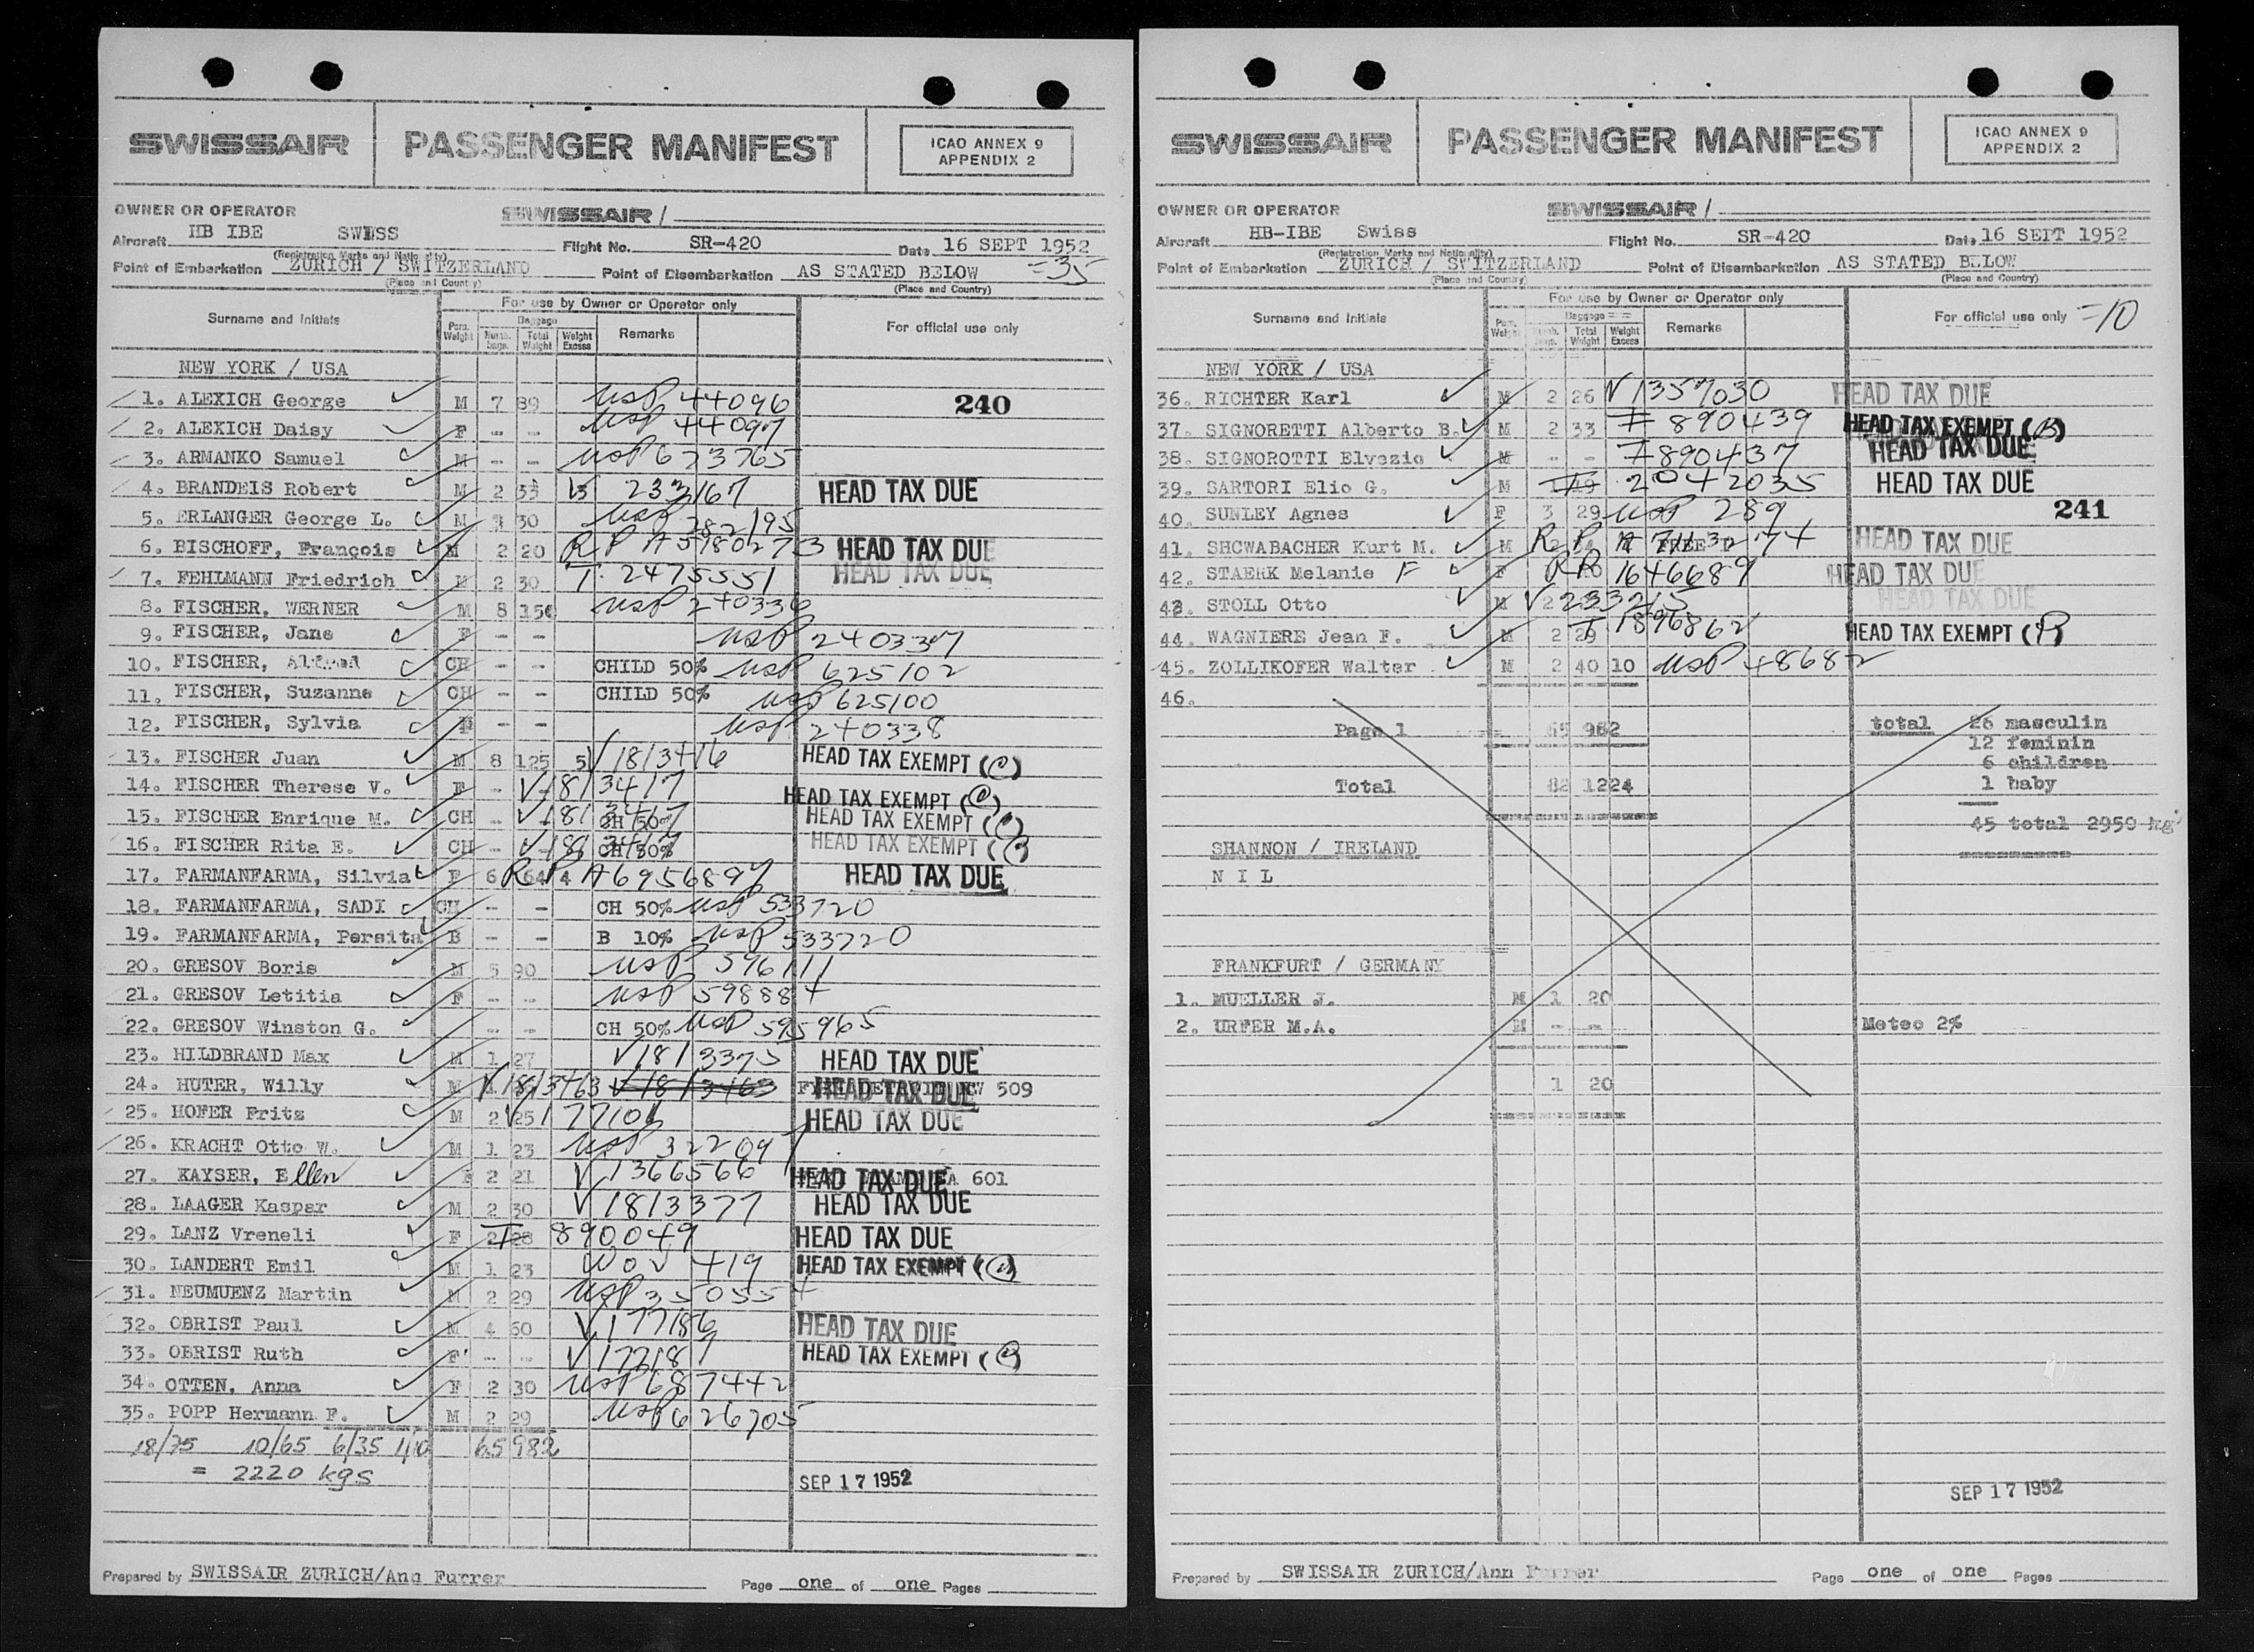 SWISSAIR PASSENGER MANIFEST ICAO ANNEX 9 APPENDIX 2
OWNER OR OPERATOR SWISSAIR /
Aircraft HB IBE SWISS Flight No. SR-420 Date 16 SEPT 1952
(Registration Marks and Nationality)
Point of Embarkation ZURICH / SWITZERLAND Point of Disembarkation AS STATED BELOW =35
(Place and Country) (Place and Country)
For use by Owner or Operator only
Surname and Initials Pers. Weight Baggage Numb. bags Total Weight Weight Excess Remarks For official use only
NEW YORK / USA
1. ALEXICH George M 7 89 USP 44096 240
2. ALEXICH Daisy F -- -- USP 44097
3. ARMANKO Samuel M -- -- USP 673765
4. BRANDEIS Robert M 2 33 V 233167 HEAD TAX DUE
5. ERLANGER George L. M 3 30 USP 282195
6. BISCHOFF, François M 2 20 RP A5980273 HEAD TAX DUE
7. FEHLMANN Friedrich M 2 30 T 2475551 HEAD TAX DUE
8. FISCHER, WERNER M 8 150 USP 240336
9. FISCHER, Jane F -- -- USP 240337
10. FISCHER, Alfred CH - - CHILD 50% USP 625102
11. FISCHER, Suzanne CH - - CHILD 50% USP 625100
12. FISCHER, Sylvia F -- -- USP 240338
13. FISCHER Juan M 8 125 5 V1813416 HEAD TAX EXEMPT (C)
14. FISCHER Therese V. F - - V1813417 HEAD TAX EXEMPT (C)
15. FISCHER Enrique M. CH - - V1813417 CH 50% HEAD TAX EXEMPT (C)
16. FISCHER Rita E. CH - - CH 50% HEAD TAX EXEMPT (C)
17. FARMANFARMA, Silvia F 6 64 4 RP A6956897 HEAD TAX DUE
18. FARMANFARMA, SADI CH - - CH 50% USP 533720
19. FARMANFARMA, Persita B - - B 10% USP 533720
20. GRESOV Boris M 5 90 USP 596111
21. GRESOV Letitia F -- -- USP 598884
22. GRESOV Winston G. -- -- CH 50% USP 595965
23. HILDBRAND Max M 1 27 V1813375 HEAD TAX DUE
24. HUTER, Willy M V1813463 V1813463 HEAD TAX DUE 509
25. HOFER Fritz M 2 25 V177101 HEAD TAX DUE
26. KRACHT Otto W. M 1 23 USP 322097
27. KAYSER, Ellen F 2 21 V1366566 HEAD TAX DUE 601
28. LAAGER Kaspar M 2 30 V1813377 HEAD TAX DUE
29. LANZ Vreneli F 2 28 T 890049 HEAD TAX DUE
30. LANDERT Emil M 1 23 WOV 419 HEAD TAX EXEMPT
31. NEUMUENZ Martin M 2 29 USP 350554
32. OBRIST Paul M 4 60 V177186 HEAD TAX DUE
33. OBRIST Ruth F -- -- V177187 HEAD TAX EXEMPT
34. OTTEN, Anna F 2 30 USP 687442
35. POPP Hermann F. M 2 29 USP 626705
18/75 10/65 6/35 1/10 65 982
= 2220 kgs
SEP 17 1952
Prepared by SWISSAIR ZURICH/Ann Furrer Page one of one Pages
SWISSAIR PASSENGER MANIFEST ICAO ANNEX 9 APPENDIX 2
OWNER OR OPERATOR SWISSAIR /
Aircraft HB-IBE Swiss Flight No. SR-420 Date 16 SEPT 1952
(Registration Marks and Nationality)
Point of Embarkation ZURICH / SWITZERLAND Point of Disembarkation AS STATED BELOW
(Place and Country) (Place and Country)
For use by Owner or Operator only
Surname and Initials Pers. Weight Baggage Numb. bags Total Weight Weight Excess Remarks For official use only =10
NEW YORK / USA
36. RICHTER Karl M 2 26 V1357030 HEAD TAX DUE
37. SIGNORETTI Alberto B. M 2 33 T 890439 HEAD TAX EXEMPT (B)
38. SIGNOROTTI Elvezio M - - T 890437 HEAD TAX DUE
39. SARTORI Elio G. M 1 19 T 2042035 HEAD TAX DUE
40. SUNLEY Agnes F 3 29 USP 289 241
41. SHCWABACHER Kurt M. M 2 RP HEAD TAX DUE
42. STAERK Melanie F F RP 1646689 HEAD TAX DUE
43. STOLL Otto M 2 V 233215 HEAD TAX DUE
44. WAGNIERE Jean F. M 2 29 T 1896862 HEAD TAX EXEMPT
45. ZOLLIKOFER Walter M 2 40 10 USP 48682
46.
Page 1 65 982 total 26 masculin
12 feminin
6 children
Total 82 1224 1 baby
45 total 2950 kg
SHANNON / IRELAND
N I L
FRANKFURT / GERMANY
1. MUELLER J. M 1 20
2. URFER M.A. M -- -- Meteo 2%
1 20
SEP 17 1952
Prepared by SWISSAIR ZURICH/Ann Furrer Page one of one Pages